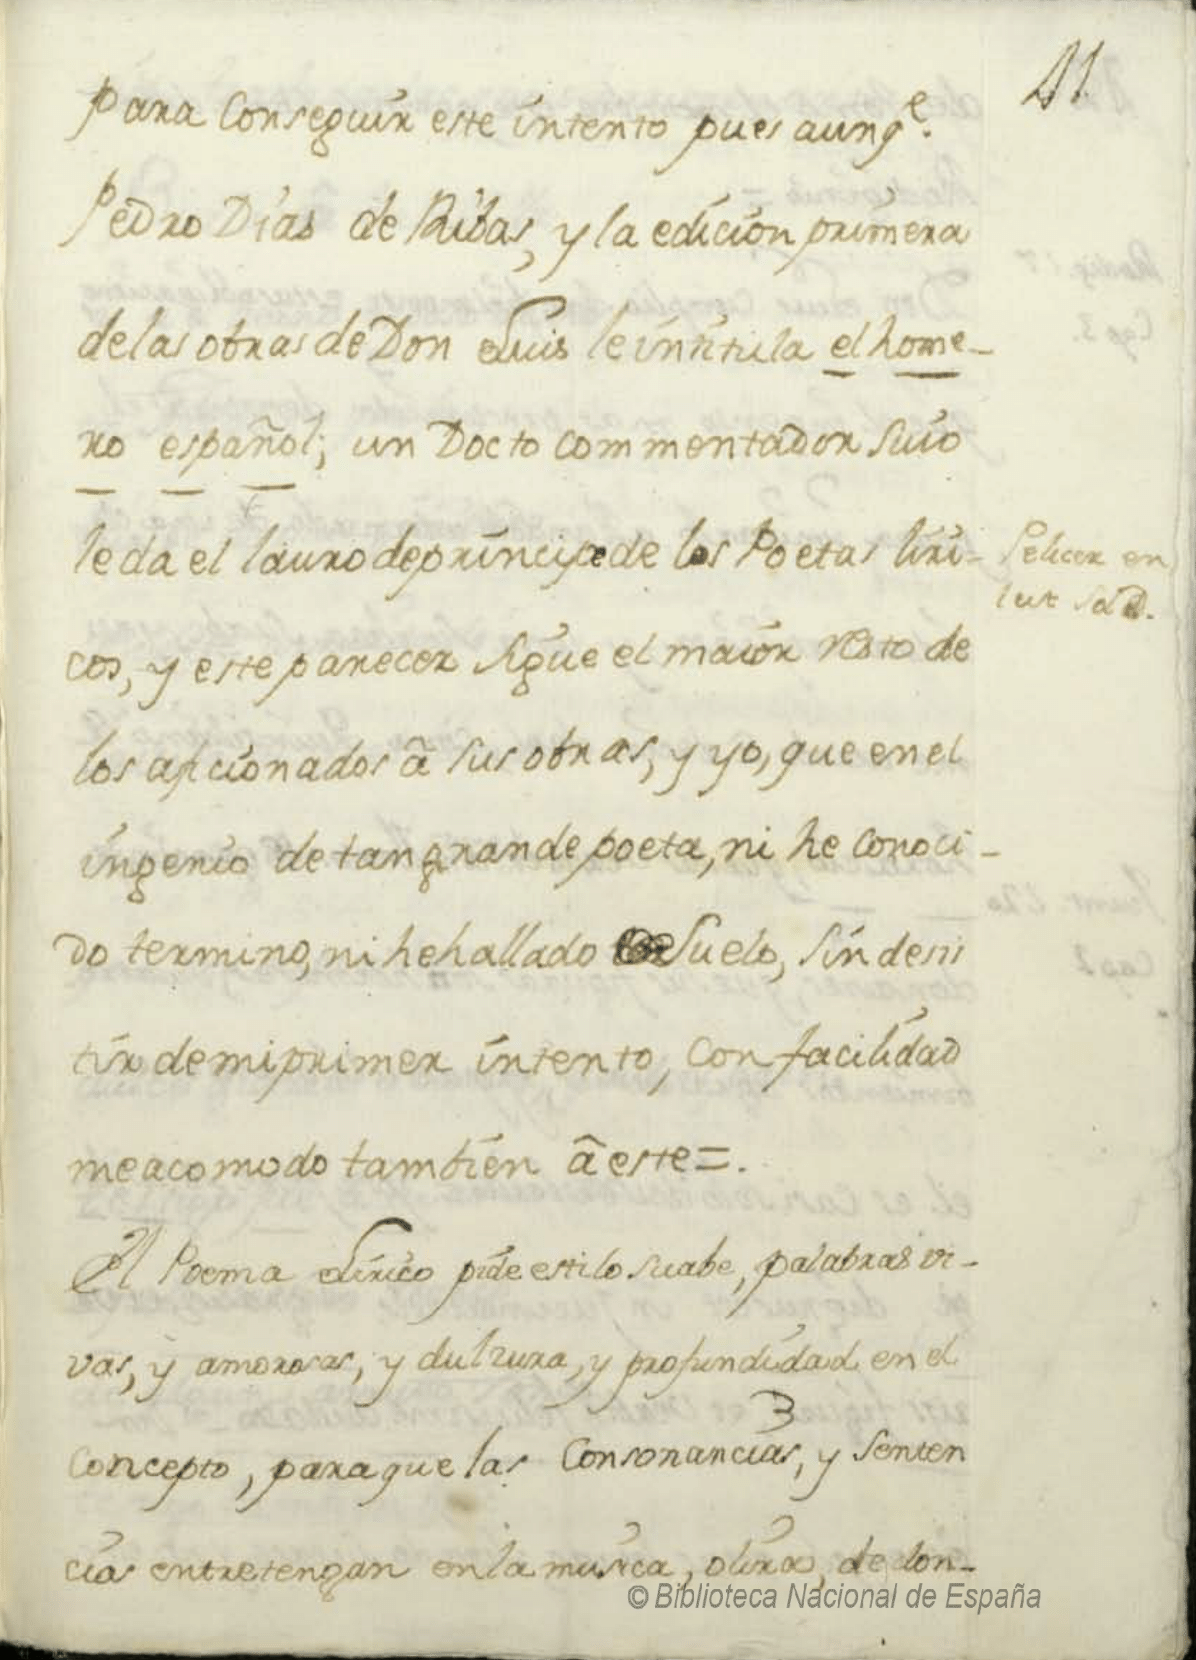 41.
para Conseguir este intento pues aunq^e.
Pedro Dias de Ribas, y la edicion primera
de las obras de Don Luis le intitula el home-
ro español; un Docto commentador suio
le da el lauro de principe de los Poetas liri-
Pelicer en
cos, y este parecer sigue el maior resto de
los aficionados â sus obras, y yo, que en el
ingenio de tan grande poeta, ni he conoci-
do termino, ni he hallado suelo, sin desis
tir de mi primer intento, Con facilidad
me acomodo tambien â este=.
El Poema Lirico pide estilo suabe, palabras vi-
vas, y amorosas, y dulzura, y profundidad en el
Concepto, para que las Consonancias, y senten
cias entretengan en la musica, o lira, de don-
© Biblioteca Nacional de España